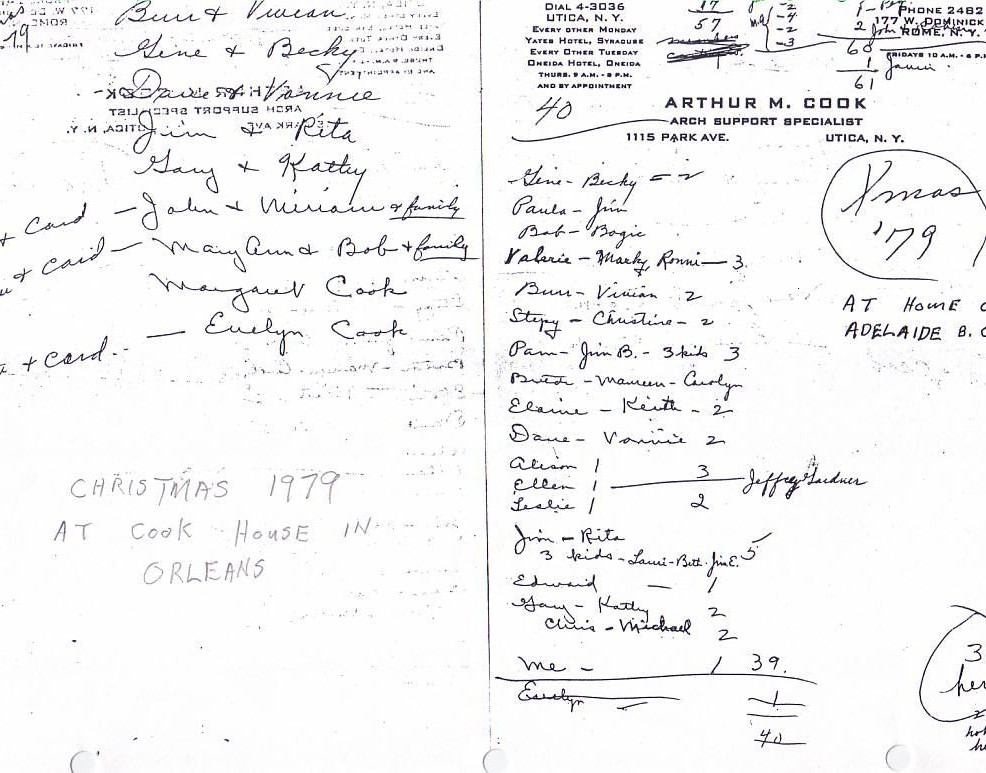 Burr & Vivian
Gene & Becky
Dave & Vonnie
Jim & Rita
Gary & Kathy
+ Card - John & Miriam & family
+ card - MaryAnn & Bob & family
Margaret Cook
+ card - Evelyn Cook
CHRISTMAS 1979
AT COOK HOUSE IN
ORLEANS
DIAL 4-3036
UTICA, N. Y.
EVERY OTHER MONDAY
YATES HOTEL, SYRACUSE
EVERY OTHER TUESDAY
ONEIDA HOTEL, ONEIDA
THURS. 9 A.M. - 8 P.M.
AND BY APPOINTMENT
57
60
1
61
PHONE 2482
177 W. DOMINICK
ROME, N. Y.
FRIDAYS 10 A.M. - 8 P.
40
ARTHUR M. COOK
ARCH SUPPORT SPECIALIST
1115 PARK AVE. UTICA, N. Y.
Xmas
'79
AT HOME
ADELAIDE B.
Gene - Becky = 2
Paula - Jim
Bab - Bogie
Valarie - Marky, Ronni - 3
Burr - Vivian 2
Stepy - Christine - 2
Pam - Jim B. - 3 kids 3
Maureen - Carolyn
Elaine - Keith - 2
Dave - Vonnie 2
Alison 1
Ellen 1 3 Jeffrey Gardner
Leslie 1 2
Jim - Rita
3 kids - Lauri - Beth - Jim E. 5
Edward - 1
Gary - Kathy 2
Chris - Michael 2
me - 1 39.
Evelyn 1
40
3